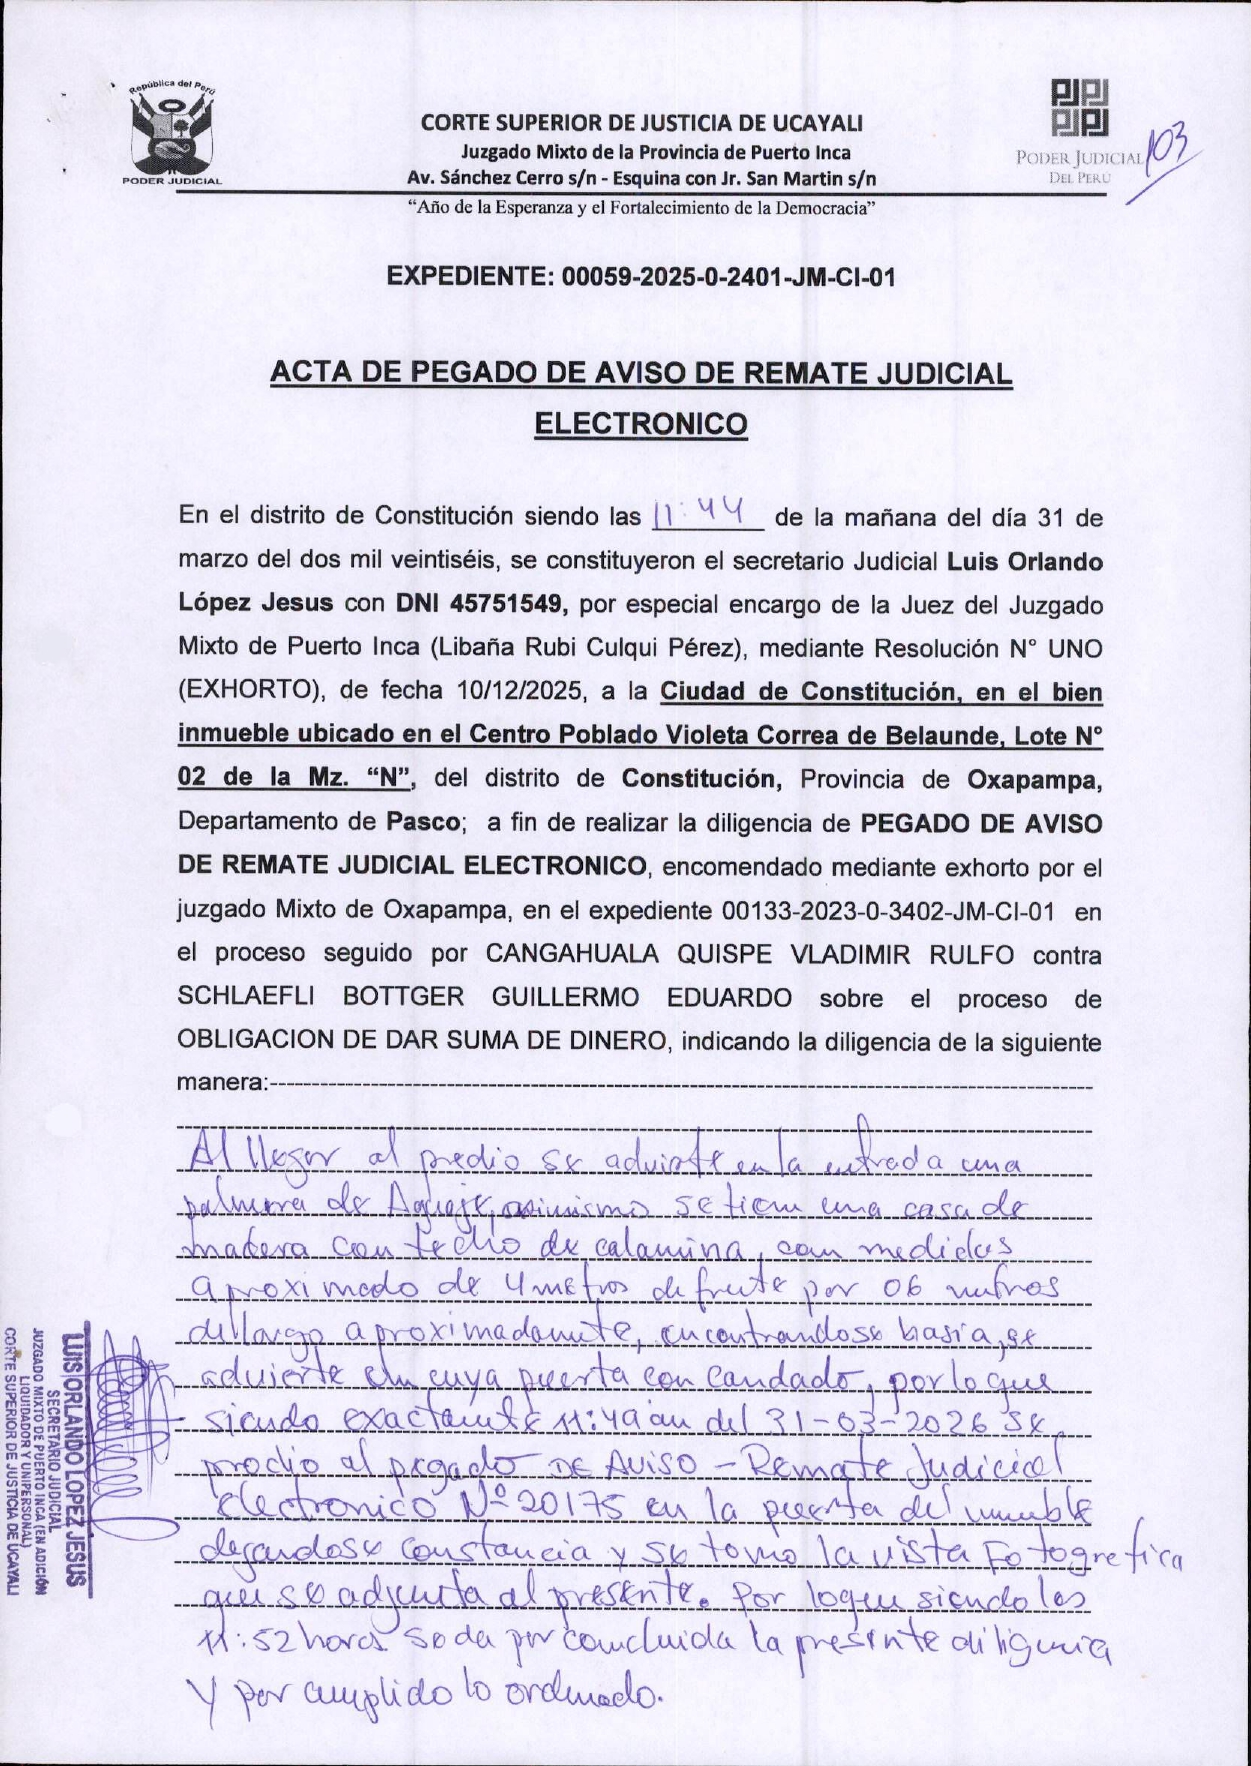 República del Perú
PODER JUDICIAL
CORTE SUPERIOR DE JUSTICIA DE UCAYALI
Juzgado Mixto de la Provincia de Puerto Inca
Av. Sánchez Cerro s/n - Esquina con Jr. San Martin s/n
“Año de la Esperanza y el Fortalecimiento de la Democracia”
PODER JUDICIAL
DEL PERÚ
103
EXPEDIENTE: 00059-2025-0-2401-JM-CI-01
ACTA DE PEGADO DE AVISO DE REMATE JUDICIAL
ELECTRONICO
En el distrito de Constitución siendo las 11:44 de la mañana del día 31 de
marzo del dos mil veintiséis, se constituyeron el secretario Judicial Luis Orlando
López Jesus con DNI 45751549, por especial encargo de la Juez del Juzgado
Mixto de Puerto Inca (Libaña Rubi Culqui Pérez), mediante Resolución N° UNO
(EXHORTO), de fecha 10/12/2025, a la Ciudad de Constitución, en el bien
inmueble ubicado en el Centro Poblado Violeta Correa de Belaunde, Lote N°
02 de la Mz. “N”, del distrito de Constitución, Provincia de Oxapampa,
Departamento de Pasco; a fin de realizar la diligencia de PEGADO DE AVISO
DE REMATE JUDICIAL ELECTRONICO, encomendado mediante exhorto por el
juzgado Mixto de Oxapampa, en el expediente 00133-2023-0-3402-JM-CI-01 en
el proceso seguido por CANGAHUALA QUISPE VLADIMIR RULFO contra
SCHLAEFLI BOTTGER GUILLERMO EDUARDO sobre el proceso de
OBLIGACION DE DAR SUMA DE DINERO, indicando la diligencia de la siguiente
manera:
Al llegar al predio se advierte en la entrada una
palmera de Aguaje, asimismo se tiene una casa de
madera con techo de calamina, con medidas
aproximado de 4 metros de frente por 06 metros
de largo aproximadamente, encontrandose basia, se
advierte en cuya puerta con candado, por lo que
siendo exactamente 11:49 am del 31-03-2026 se
prodio al pegado DE AVISO - Remate Judicial
electronico Nº 20175 en la puerta del inmueble
dejandose constancia y se tomo la vista Fotografica
que se adjunta al presente. Por loque siendo las
11:52 horas se da por concluida la presente diligencia
y por cumplido lo ordenado.
LUIS ORLANDO LOPEZ JESUS
SECRETARIO JUDICIAL
JUZGADO MIXTO DE PUERTO INCA (EN ADICIÓN
LIQUIDADOR Y UNIPERSONAL)
CORTE SUPERIOR DE JUSTICIA DE UCAYALI